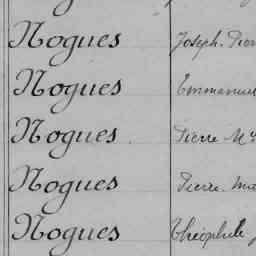 Nogues Joseph
Nogues Emmanuel
Nogues Pierre
Nogues Pierre
Nogues Théophile